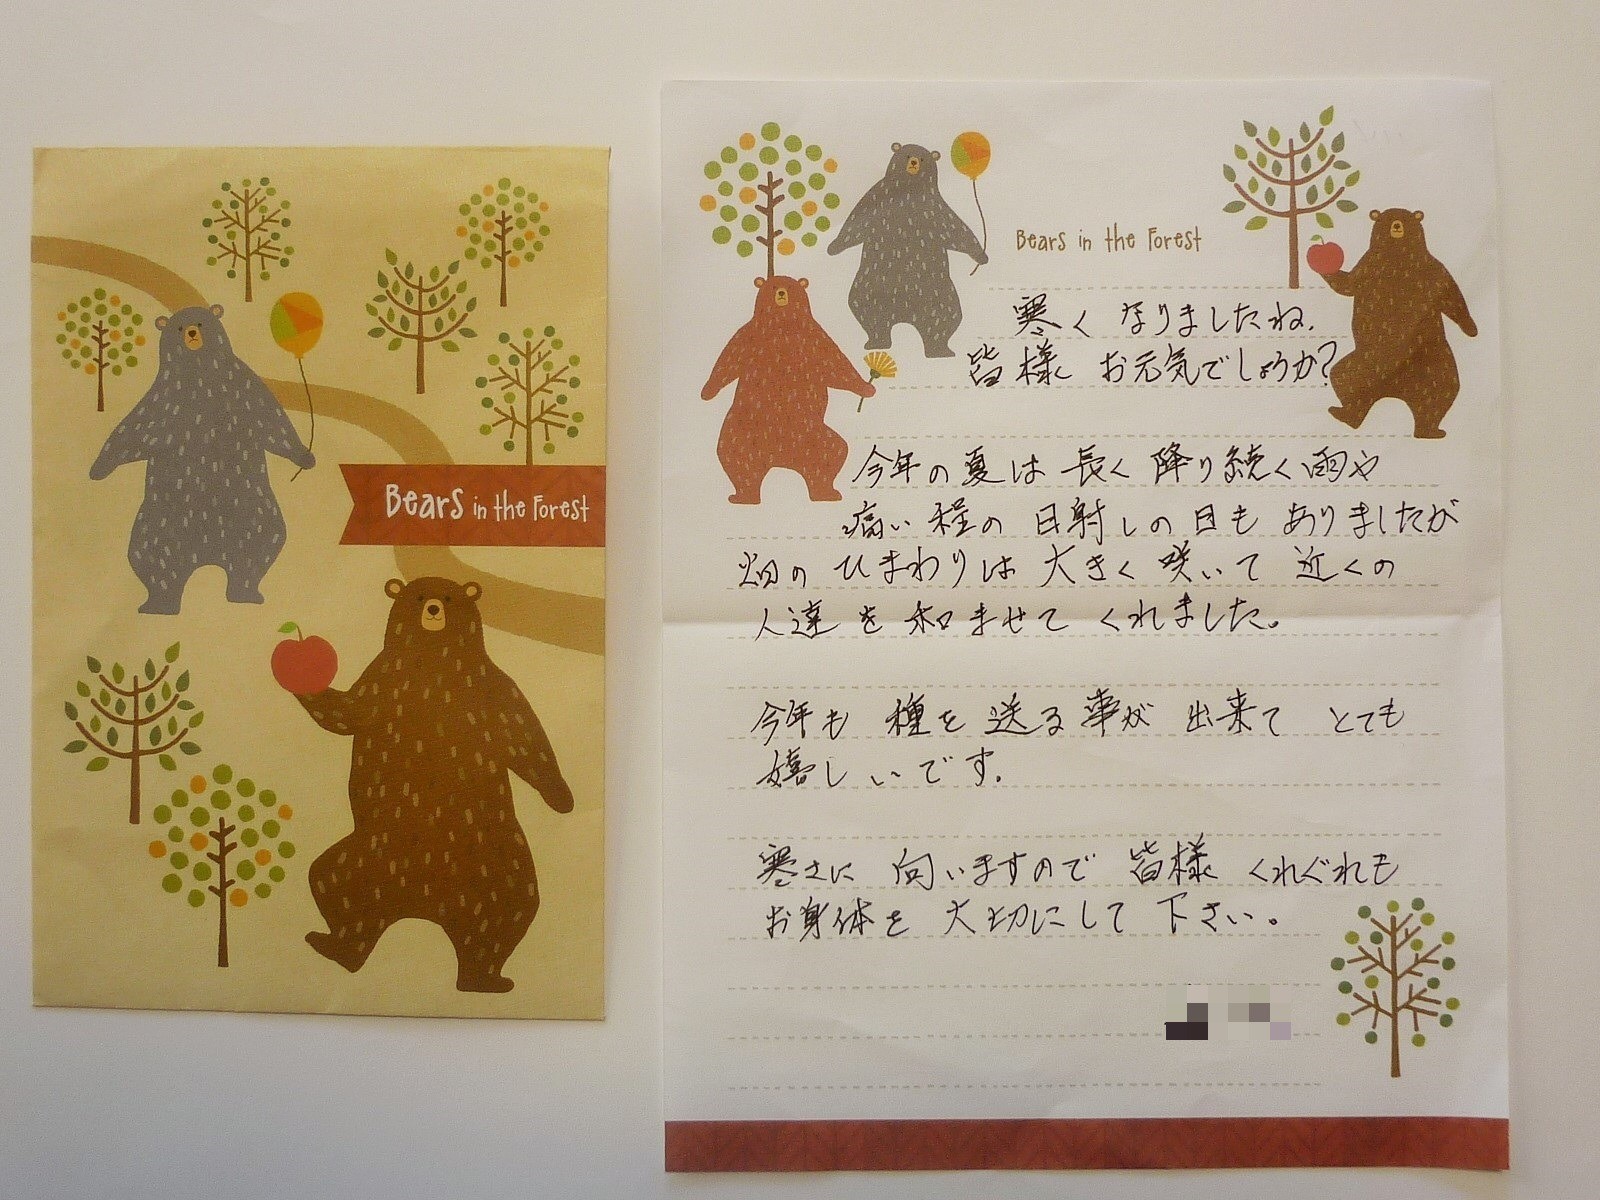 Bears in the Forest
Bears in the Forest
寒くなりましたね.
皆様 お元気でしょうか?
今年の夏は 長く 降り続く雨や
痛い程の 日射しの日も ありましたが
畑の ひまわりは 大きく 咲いて 近くの
人達を 和ませて くれました。
今年も 種を 送る事が 出来て とても
嬉しいです.
寒さに 向いますので 皆様 くれぐれも
お身体を 大切にして 下さい。